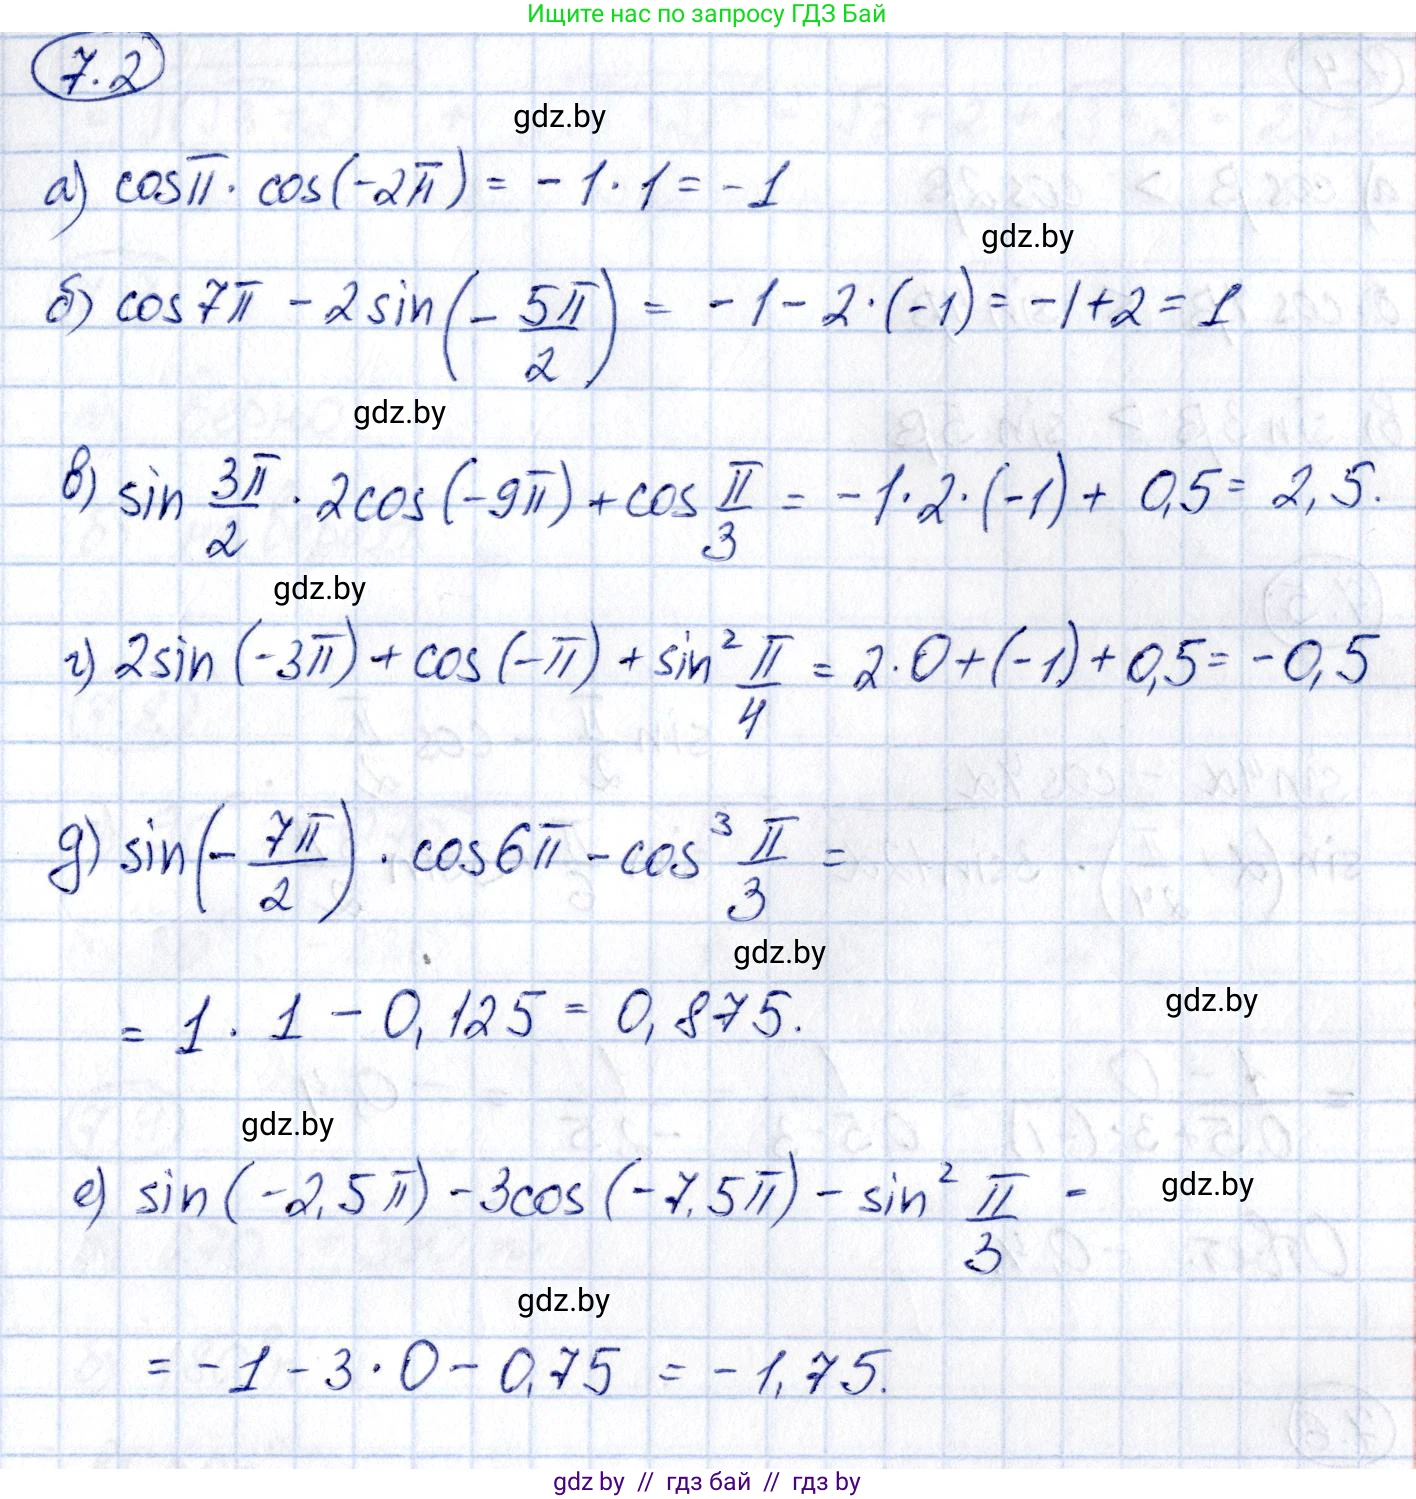 Ищите нас по запросу ГДЗ Бай
7.2
gdz.by
а) cosπ · cos(-2π) = -1·1 = -1
gdz.by
б) cos7π - 2sin(-5π/2) = -1-2·(-1) = -1+2 = 1
gdz.by
в) sin 3π/2 · 2cos(-9π) + cos π/3 = -1·2·(-1) + 0,5 = 2,5.
gdz.by
г) 2sin(-3π) + cos(-π) + sin² π/4 = 2·0+(-1)+0,5 = -0,5
д) sin(-7π/2) · cos6π - cos³ π/3 =
gdz.by
= 1 · 1 - 0,125 = 0,875.
gdz.by
gdz.by
е) sin(-2,5π) - 3cos(-7,5π) - sin² π/3 -
gdz.by
gdz.by
= -1 - 3·0 - 0,75 = -1,75.
gdz.by // гдз бай // гдз by